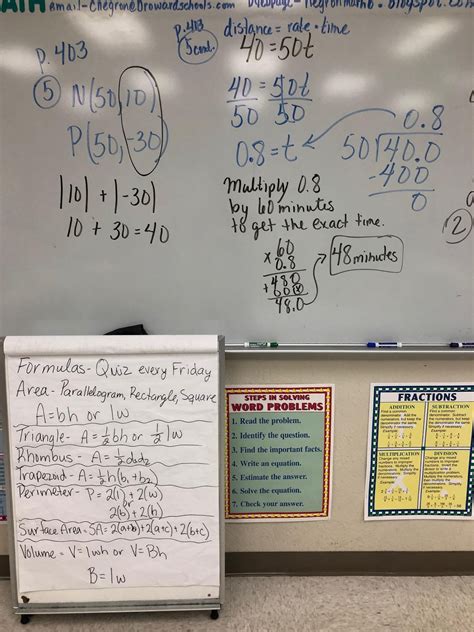 email-chegron@browardschools.com
p.403
5
N(50,10)
P(50,-30)
|10| + |-30|
10 + 30 = 40
p.403
5 cont.
distance = rate · time
40 = 50t
40 = 50t
50 50
0.8 = t
Multiply 0.8
by 60 minutes
to get the exact time.
60
x 0.8
480
48.0
48 minutes
0.8
50)40.0
-400
0
2
Formulas- Quiz every Friday
Area - Parallelogram, Rectangle, Square
A=bh or lw
Triangle- A = 1/2 bh or 1/2 lw
Rhombus - A = 1/2 d₁d₂
Trapezoid - A = 1/2 h(b₁+b₂)
Perimeter - P = 2(l) + 2(w)
or
2(b) + 2(h)
Surface Area = SA = 2(a+b)+2(a+c)+2(b+c)
Volume = V = lwh or V = Bh
B = lw
STEPS IN SOLVING
WORD PROBLEMS
1. Read the problem.
2. Identify the question.
3. Find the important facts.
4. Write an equation.
5. Estimate the answer.
6. Solve the equation.
7. Check your answer.
FRACTIONS
ADDITION
SUBTRACTION
MULTIPLICATION
DIVISION